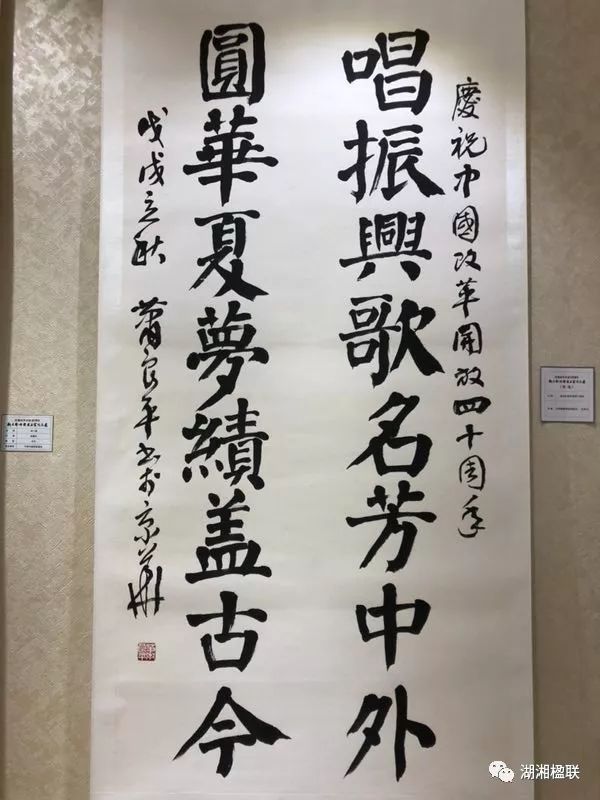 慶祝中國改革開放四十周年
唱振興歌名芳中外
圓華夏夢績盖古今
戊戌立秋 蕭良平书於京華
湖湘楹联